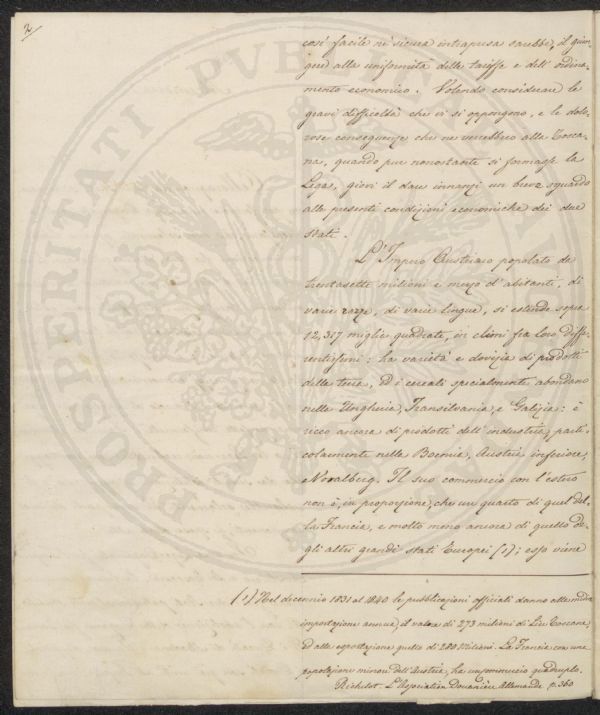 2
così facile nè sicura intrapresa sarebbe, il giun-
gere alla uniformità delle tariffe e dell'ordina-
mento economico. Volendo considerare le
gravi difficoltà che vi si oppongono, e le dolo-
rose conseguenze che ne verrebbero alla Tosca-
na, quando pur nonostante si formasse la
Lega, giovi il dare innanzi un breve sguardo
alle presenti condizioni economiche dei due
stati.
L'Impero Austriaco popolato da
trentasette milioni e mezzo d'abitanti, di
varie razze, di varie lingue, si estende sopra
12,317 miglia quadrate, in climi fra loro diffe-
rentissimi: ha varietà e dovizia di prodotti
della terra, ed i cereali specialmente abondano
nelle Ungheria, Transilvania, e Galizia: è
ricco ancora di prodotti dell'industria, parti-
colarmente nella Boemia, Austria inferiore,
e Voralberg. Il suo commercio con l'estero
non è, in proporzione, che un quarto di quel del-
la Francia, e molto meno ancora di quello de-
gli altri grandi stati Europei (1); esso viene
(1) Nel decennio 1831 al 1840 le pubblicazioni officiali danno alla media
importazione annua, il valore di 273 milioni di Lire Toscane,
ed alla esportazione quello di 280 Milioni. La Francia con una
popolazione minore dell'Austria, ha un commercio quadruplo.
Richelot. L'Association Douanière Allemande p. 360
PROSPERITATI PVBLICAE